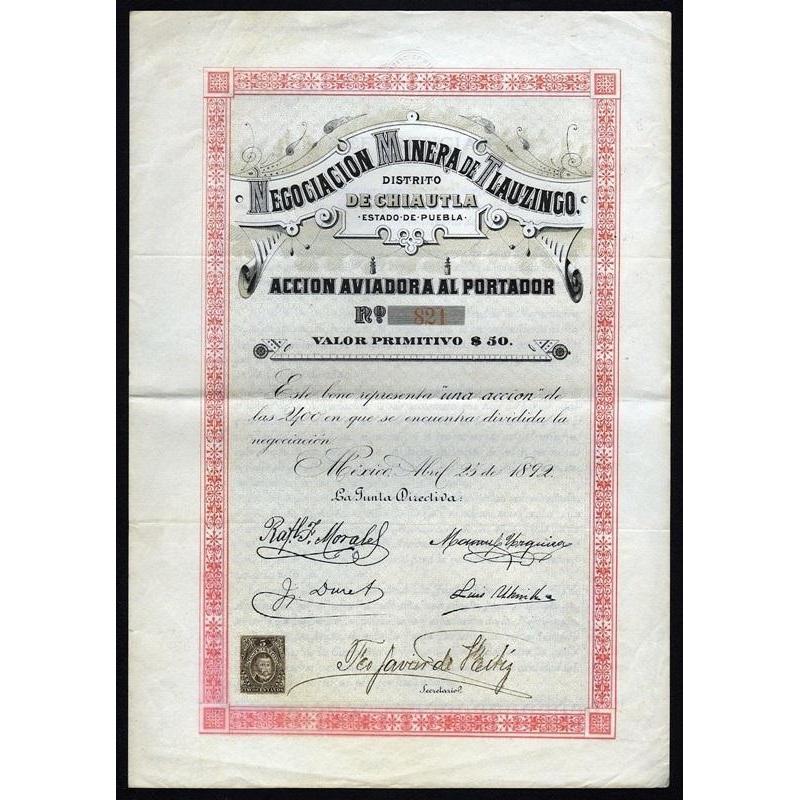 NEGOCIACION MINERA DE TLAUZINGO.
DISTRITO
DE CHIAUTLA
ESTADO-DE-PUEBLA
ACCION AVIADORA AL PORTADOR
Nº 821
VALOR PRIMITIVO $ 50.
Este bono representa "una accion" de
las 2400 en que se encuentra dividida la
negociación
México, Abril 25 de 1892.
La Junta Directiva:
Raf. F. Morales
Manuel
J. Duret
Luis
Javier de
Secretario
5